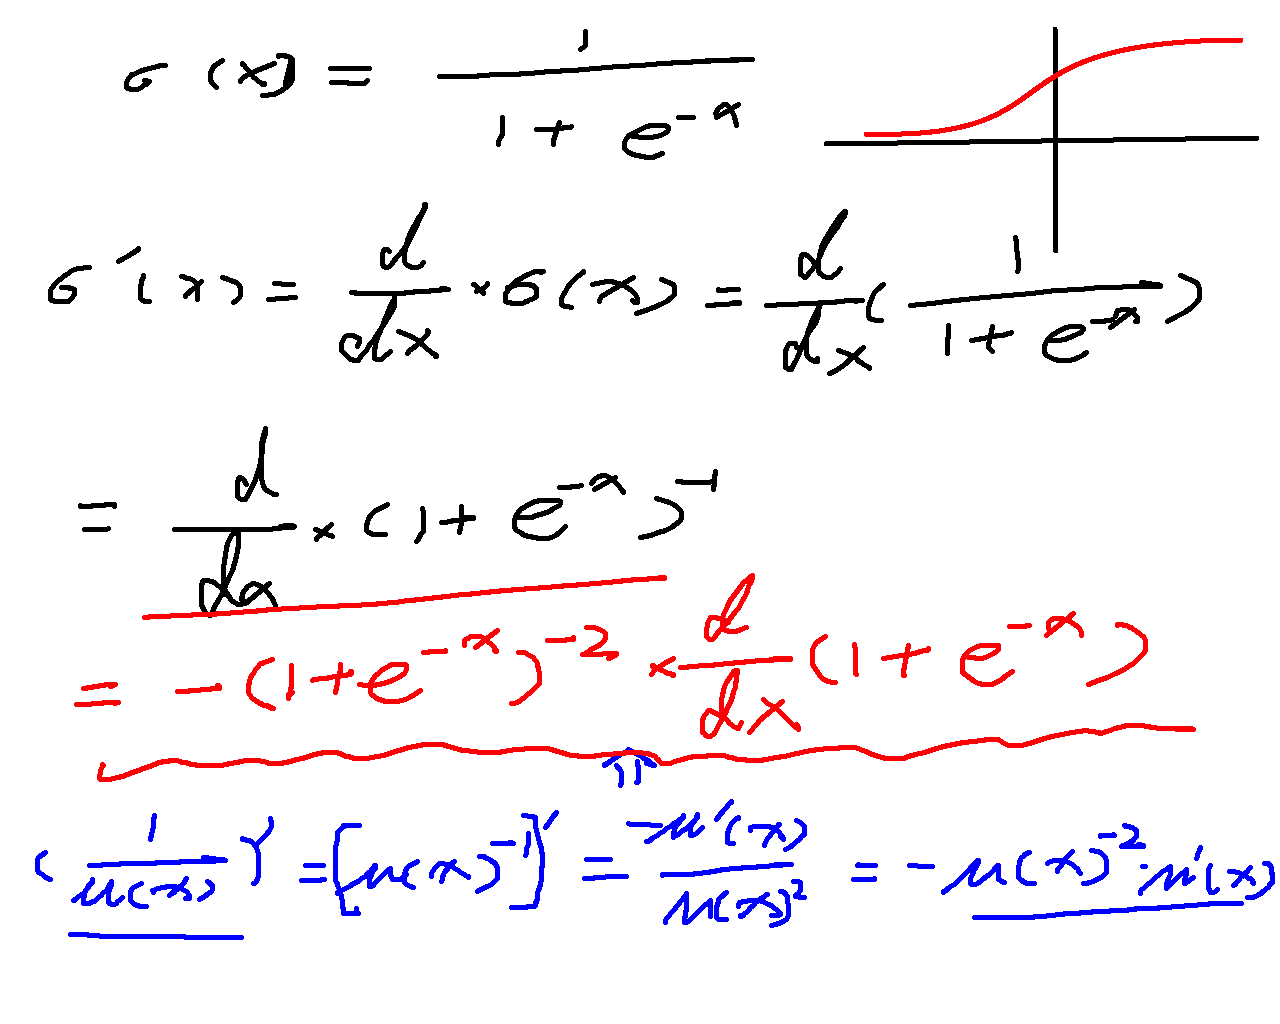 σ(x) = 1 / (1 + e^{-x})
σ'(x) = d/dx × σ(x) = d/dx (1 / (1 + e^{-x}))
= d/dx × (1 + e^{-x})^{-1}
= -(1 + e^{-x})^{-2} × d/dx (1 + e^{-x})
(1 / u(x))' = [u(x)^{-1}]' = -u'(x) / u(x)^2 = -u(x)^{-2} · u'(x)